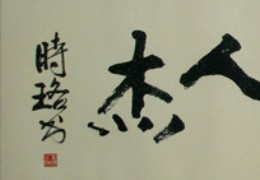 人杰
時珞书